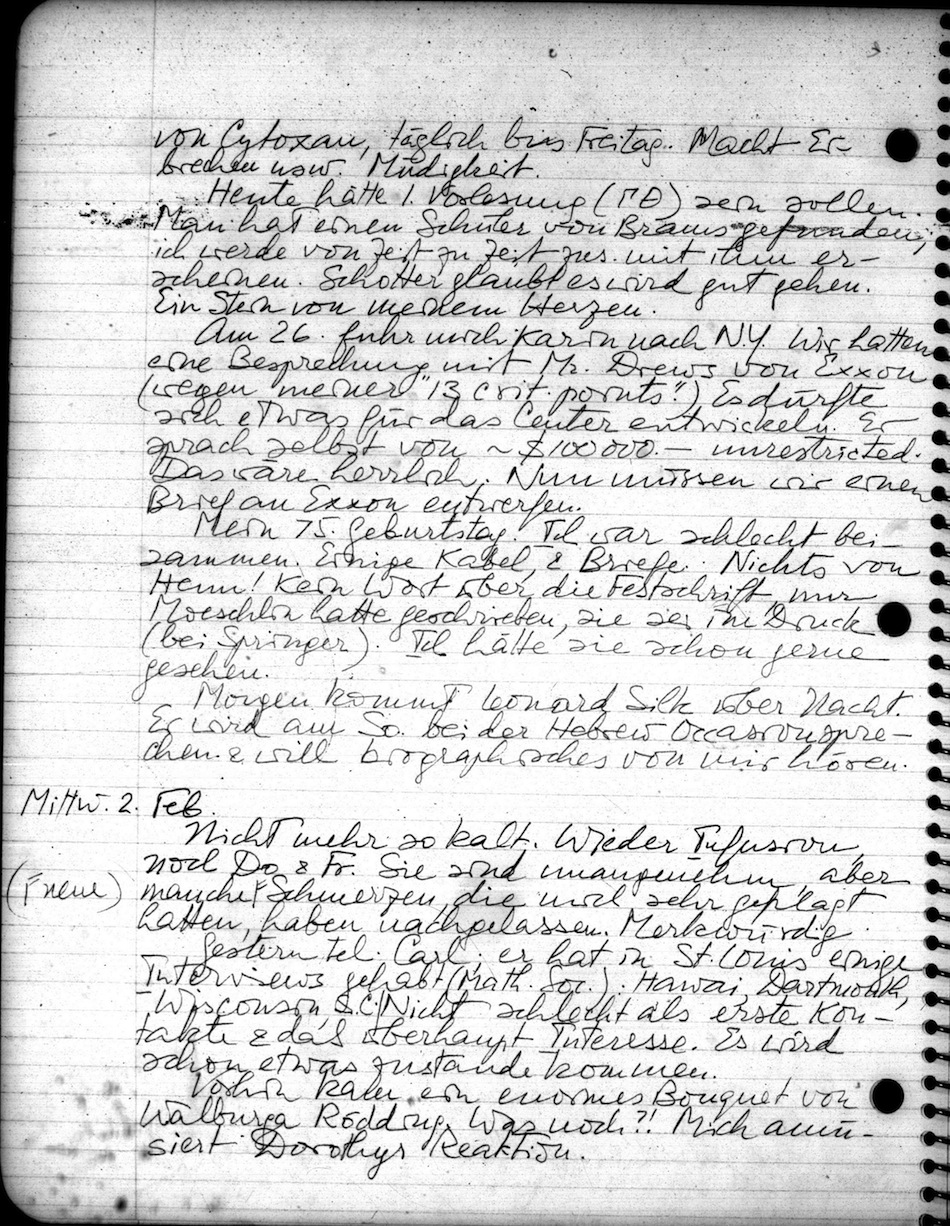 von Cytoxan, täglich bis Freitag. Macht Er-
brechen usw. Müdigkeit.
Heute hätte 1. Vorlesung (ΓΘ) sein sollen.
Man hat einen Schüler von Brams gefunden,
ich werde von Zeit zu Zeit zus. mit ihm er-
scheinen. Schotter glaubt es wird gut gehen.
Ein Stein von meinem Herzen.
Am 26. fuhr mich Karin nach N.Y. Wir hatten
eine Besprechung mit Mr. Drews von Exxon
(wegen meiner "13 crit. points".) Es dürfte
sich etwas für das Center entwickeln. Er
sprach selbst von ~ $100000.— unrestricted.
Das wäre herrlich. Nun müssen wir einen
Brief an Exxon entwerfen.
Mein 75. Geburtstag. Ich war schlecht bei-
sammen. Einige Kabel, & Briefe. Nichts von
Henn! Kein Wort über die Festschrift nur
Moeschlin hatte geschrieben, sie sei im Druck
(bei Springer). Ich hätte sie schon gerne
gesehen.
Morgen kommt Leonard Silk über Nacht.
Er wird am So. bei der Hebrew Occasion spre-
chen & will biographisches von mir hören.
Mittw. 2. Feb.
Nicht mehr so kalt. Wieder Infusion,
noch Do & Fr. Sie sind unangenehm, aber
(Γ neue) manche Γ Schmerzen, die mich sehr geplagt
hatten, haben nachgelassen. Merkwürdig.
Gestern tel. Carl; er hat in St. Louis einige
Interviews gehabt (Math. Soc.): Hawai, Dartmouth,
Wisconsin, S.C. Nicht schlecht als erste Kon-
takte & daß überhaupt Interesse. Es wird
schon etwas zustande kommen.
Vorhin kam ein enormes Bouquet von
Walburga Rödding. Was noch?! Mich amü-
siert Dorothys Reaktion.